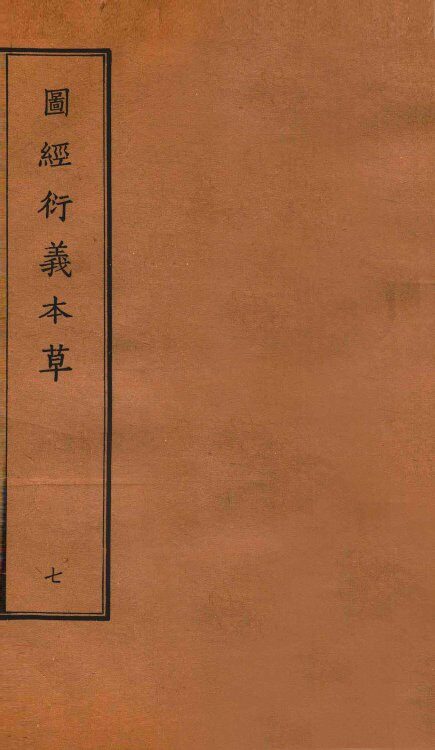 圖經衍義本草
七